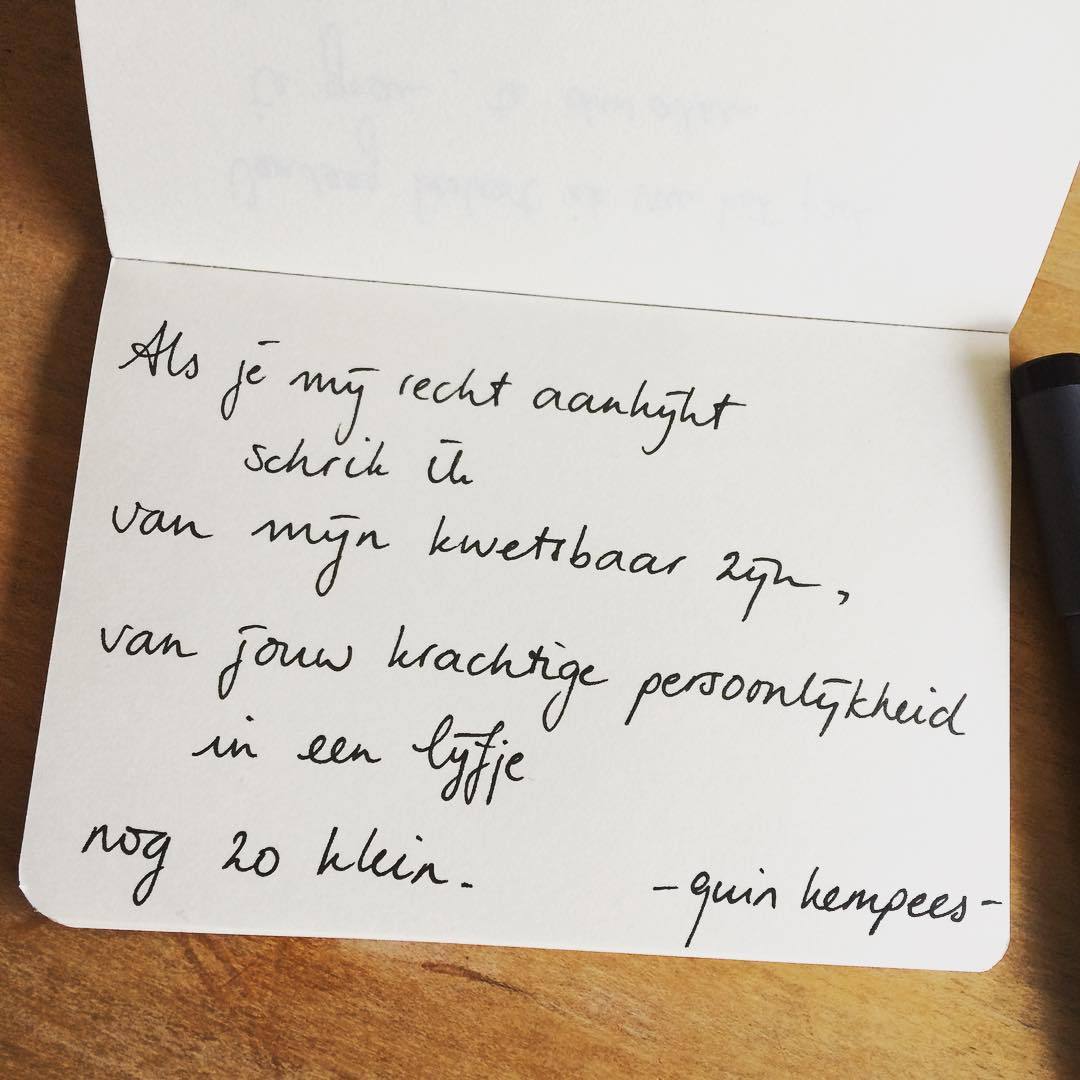 Als je mij recht aankijkt
schrik ik
van mijn kwetsbaar zijn,
van jouw krachtige persoonlijkheid
in een lijfje
nog zo klein.
-quin kempees-